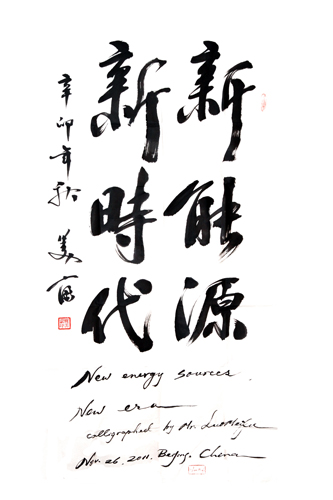 新能源
新時代
辛卯年
New energy sources
New era
calligraphed by Mr. Luo
Nov. 26. 2011. Beijing. China